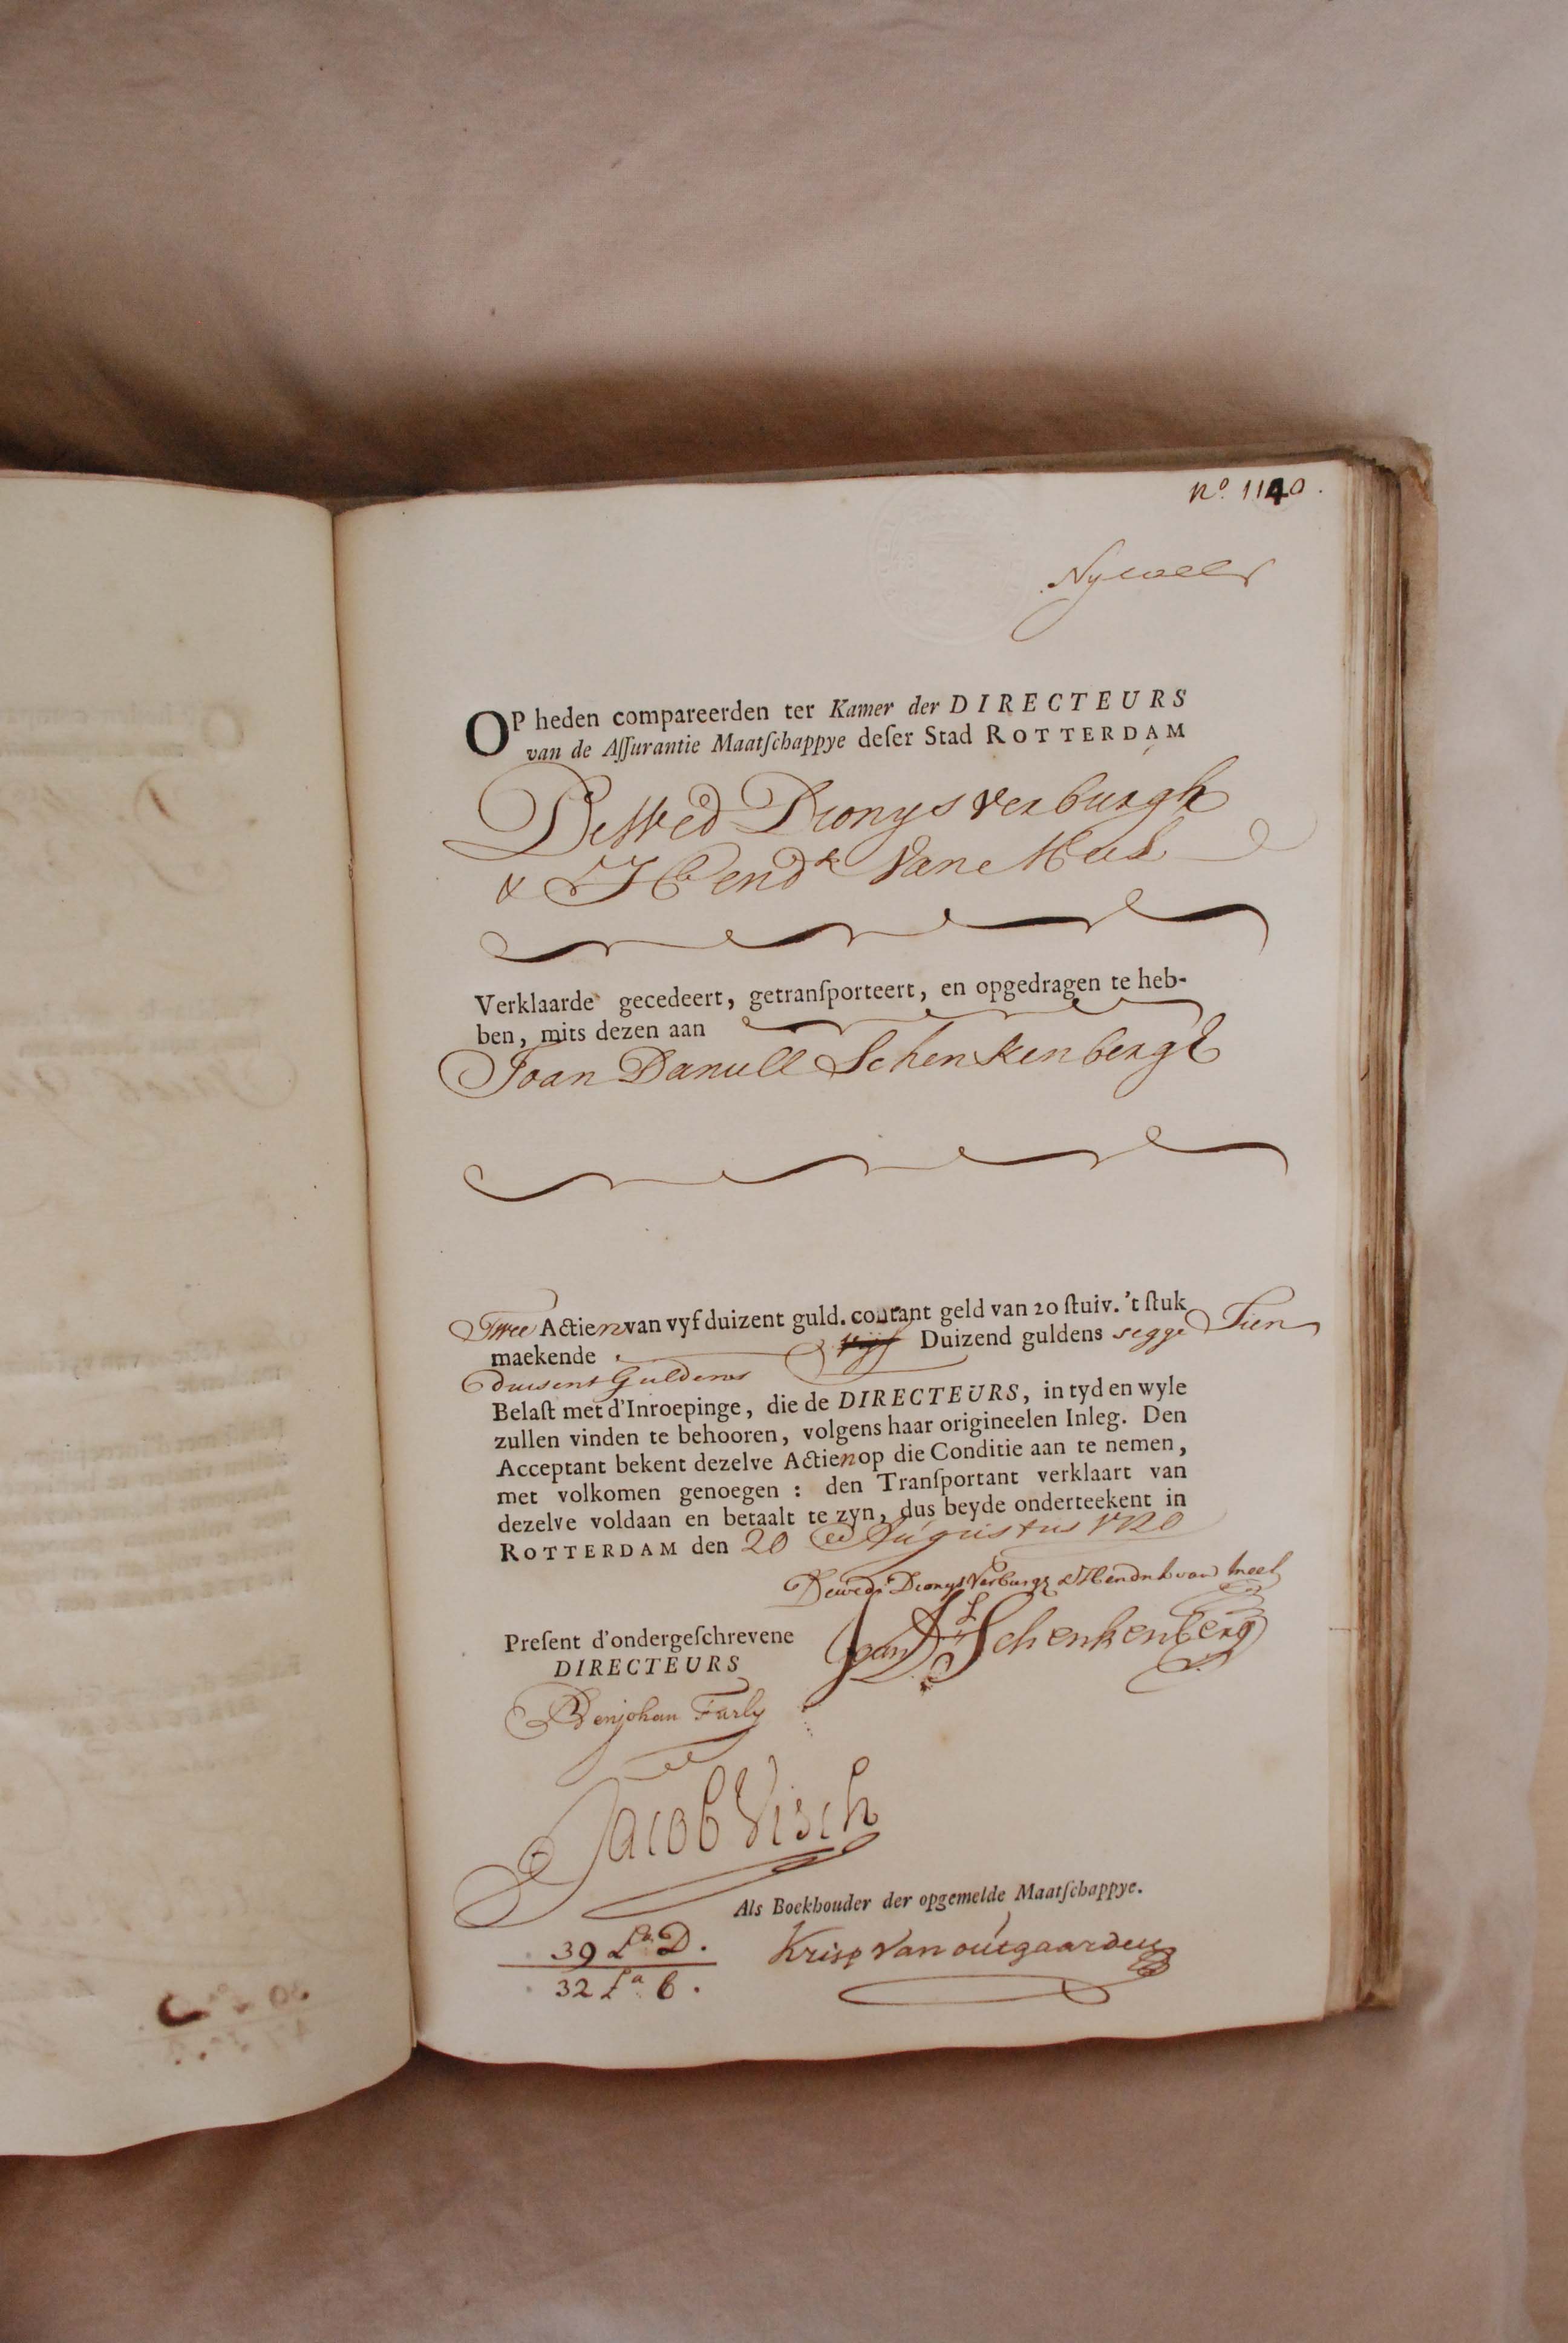 No. 1140.
Nyweer
OP heden compareerden ter Kamer der DIRECTEURS
van de Aſſurantie Maatſchappye deſer Stad ROTTERDAM
De Wed Dionys Verburgh
& Hendk Van Meel
Verklaarde gecedeert, getranſporteert, en opgedragen te heb-
ben, mits dezen aan
Joan Daniel Schenkenbergh
Twee Actien van vyf duizent guld. courant geld van 20 ſtuiv. 't ſtuk
maekende vijf Duizend guldens segge Tien
duisent Guldens
Belaſt met d'Inroepinge, die de DIRECTEURS, in tyd en wyle
zullen vinden te behooren, volgens haar origineelen Inleg. Den
Acceptant bekent dezelve Actien op die Conditie aan te nemen,
met volkomen genoegen : den Tranſportant verklaart van
dezelve voldaan en betaalt te zyn, dus beyde onderteekent in
ROTTERDAM den 20 Augustus 1720
De wed: Dionys Verburgh & Hendrik van Meel
Joan Dl Schenkenberg
Preſent d'ondergeſchrevene
DIRECTEURS
Benjohan Furly
Jacob Visch
Als Boekhouder der opgemelde Maatſchappye.
Krisp Van outgaarden
39 La. D.
32 La. 6.